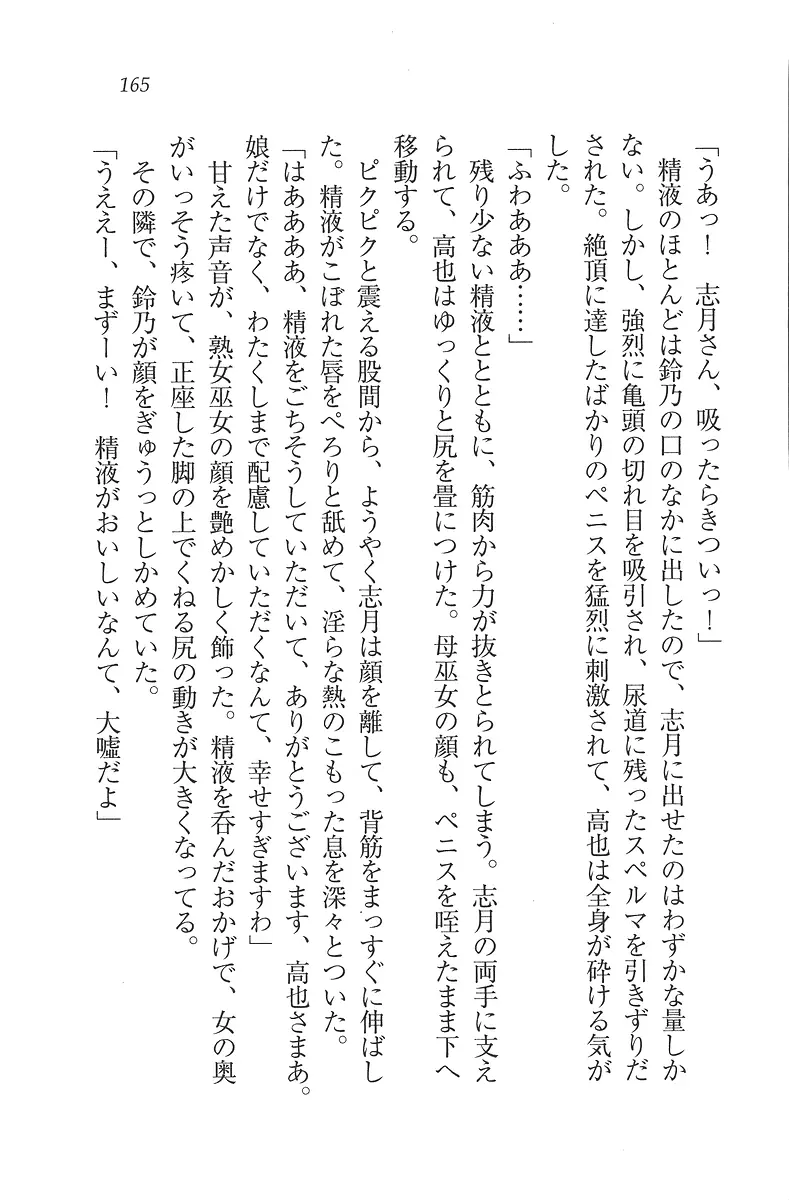 165
「うあっ！　志月さん、吸ったらきついっ！」
　精液のほとんどは鈴乃の口のなかに出したので、志月に出せたのはわずかな量しか
ない。しかし、強烈に亀頭の切れ目を吸引され、尿道に残ったスペルマを引きずりだ
された。絶頂に達したばかりのペニスを猛烈に刺激されて、高也は全身が砕ける気が
した。
「ふわあああ……」
　残り少ない精液とともに、筋肉から力が抜きとられてしまう。志月の両手に支え
られて、高也はゆっくりと尻を畳につけた。母巫女の顔も、ペニスを咥えたまま下へ
移動する。
　ピクピクと震える股間から、ようやく志月は顔を離して、背筋をまっすぐに伸ばし
た。精液がこぼれた唇をぺろりと舐めて、淫らな熱のこもった息を深々とついた。
「はああああ、精液をごちそうしていただいて、ありがとうございます、高也さまあ。
娘だけでなく、わたくしまで配慮していただくなんて、幸せすぎますわ」
　甘えた声音が、熟女巫女の顔を艶めかしく飾った。精液を呑んだおかげで、女の奥
がいっそう疼いて、正座した脚の上でくねる尻の動きが大きくなってる。
　その隣で、鈴乃が顔をぎゅうっとしかめていた。
「うええー、まずーい！　精液がおいしいなんて、大嘘だよ」